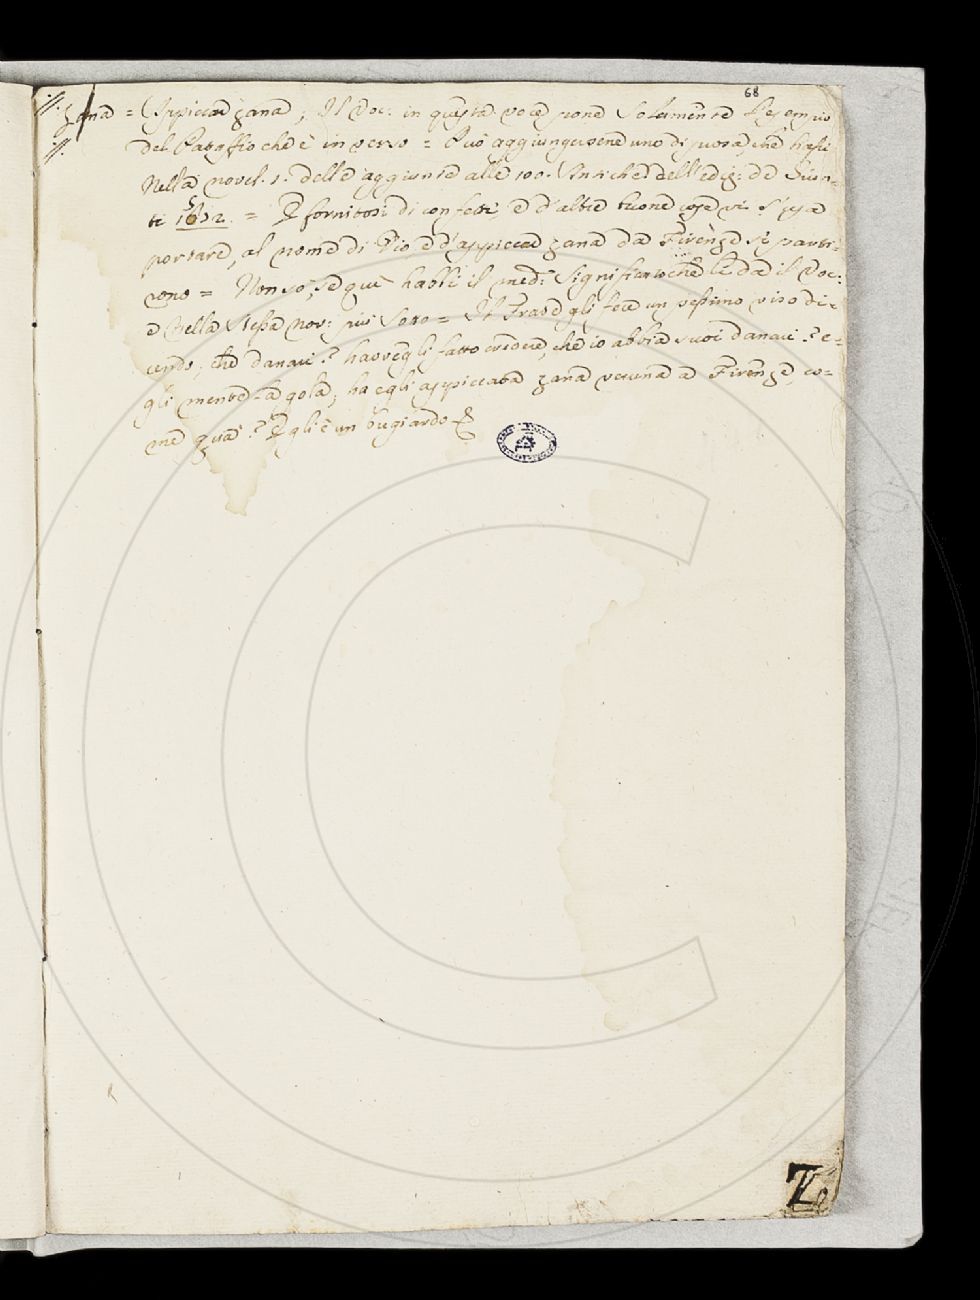 68
Zana = Appiccar zana; Il Voc: in questa voce pone solamente l'esempio
del Pataffio che è in verso = Può aggiungersene uno di prosa, che
Nella novel. 1. delle aggiunte alle 100. Antiche dell'ediz: de Giun-
ti 1572. = E fornitosi di confetti, e d'altre buone cose vi
portare, al nome di Dio, e d'appiccar zana da Firenze si parti-
rono = Non so, se quì habbi il med: significato che le da il Voc:
e Nella stessa nov: più sotto = Il Frate gli fece un pessimo viso di-
cendo; che danari? havvegli fatto credere, che io abbia suoi danari? e-
gli mente la gola; ha egli appiccata zana veruna a Firenze, co-
me quà? Egli è un bugiardo
Z